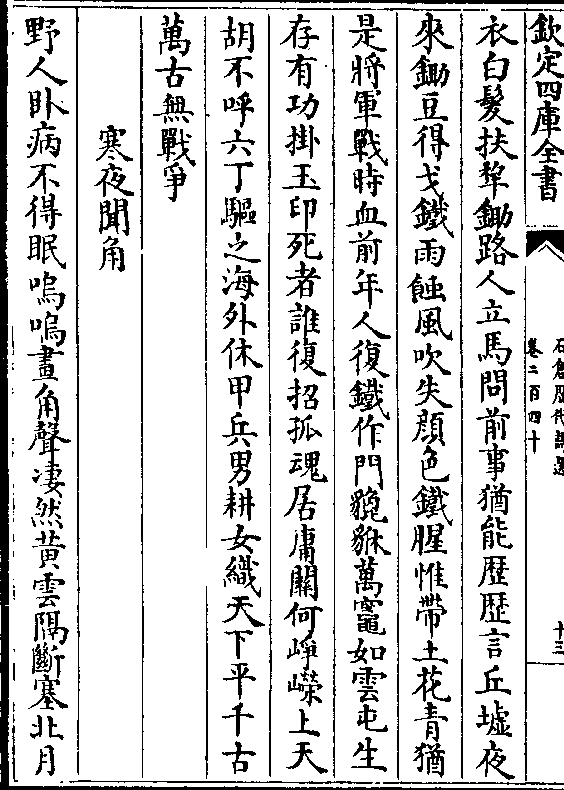 欽定四庫全書
石倉歷代詩選
卷二百四十
十三
衣白髮扶犂鋤路人立馬問前事猶能歴歴言丘墟夜
來鋤豆得戈鐵雨蝕風吹失顔色鐵腥惟帶土花青猶
是將軍戰時血前年人復鐵作門貔貅萬竈如雲屯生
存有功掛玉印死者誰復招孤魂居庸關何崢嶸上天
胡不呼六丁驅之海外休甲兵男耕女織天下平千古
萬古無戰爭
寒夜聞角
野人卧病不得眠嗚嗚畫角聲凄然黄雲隔斷塞北月